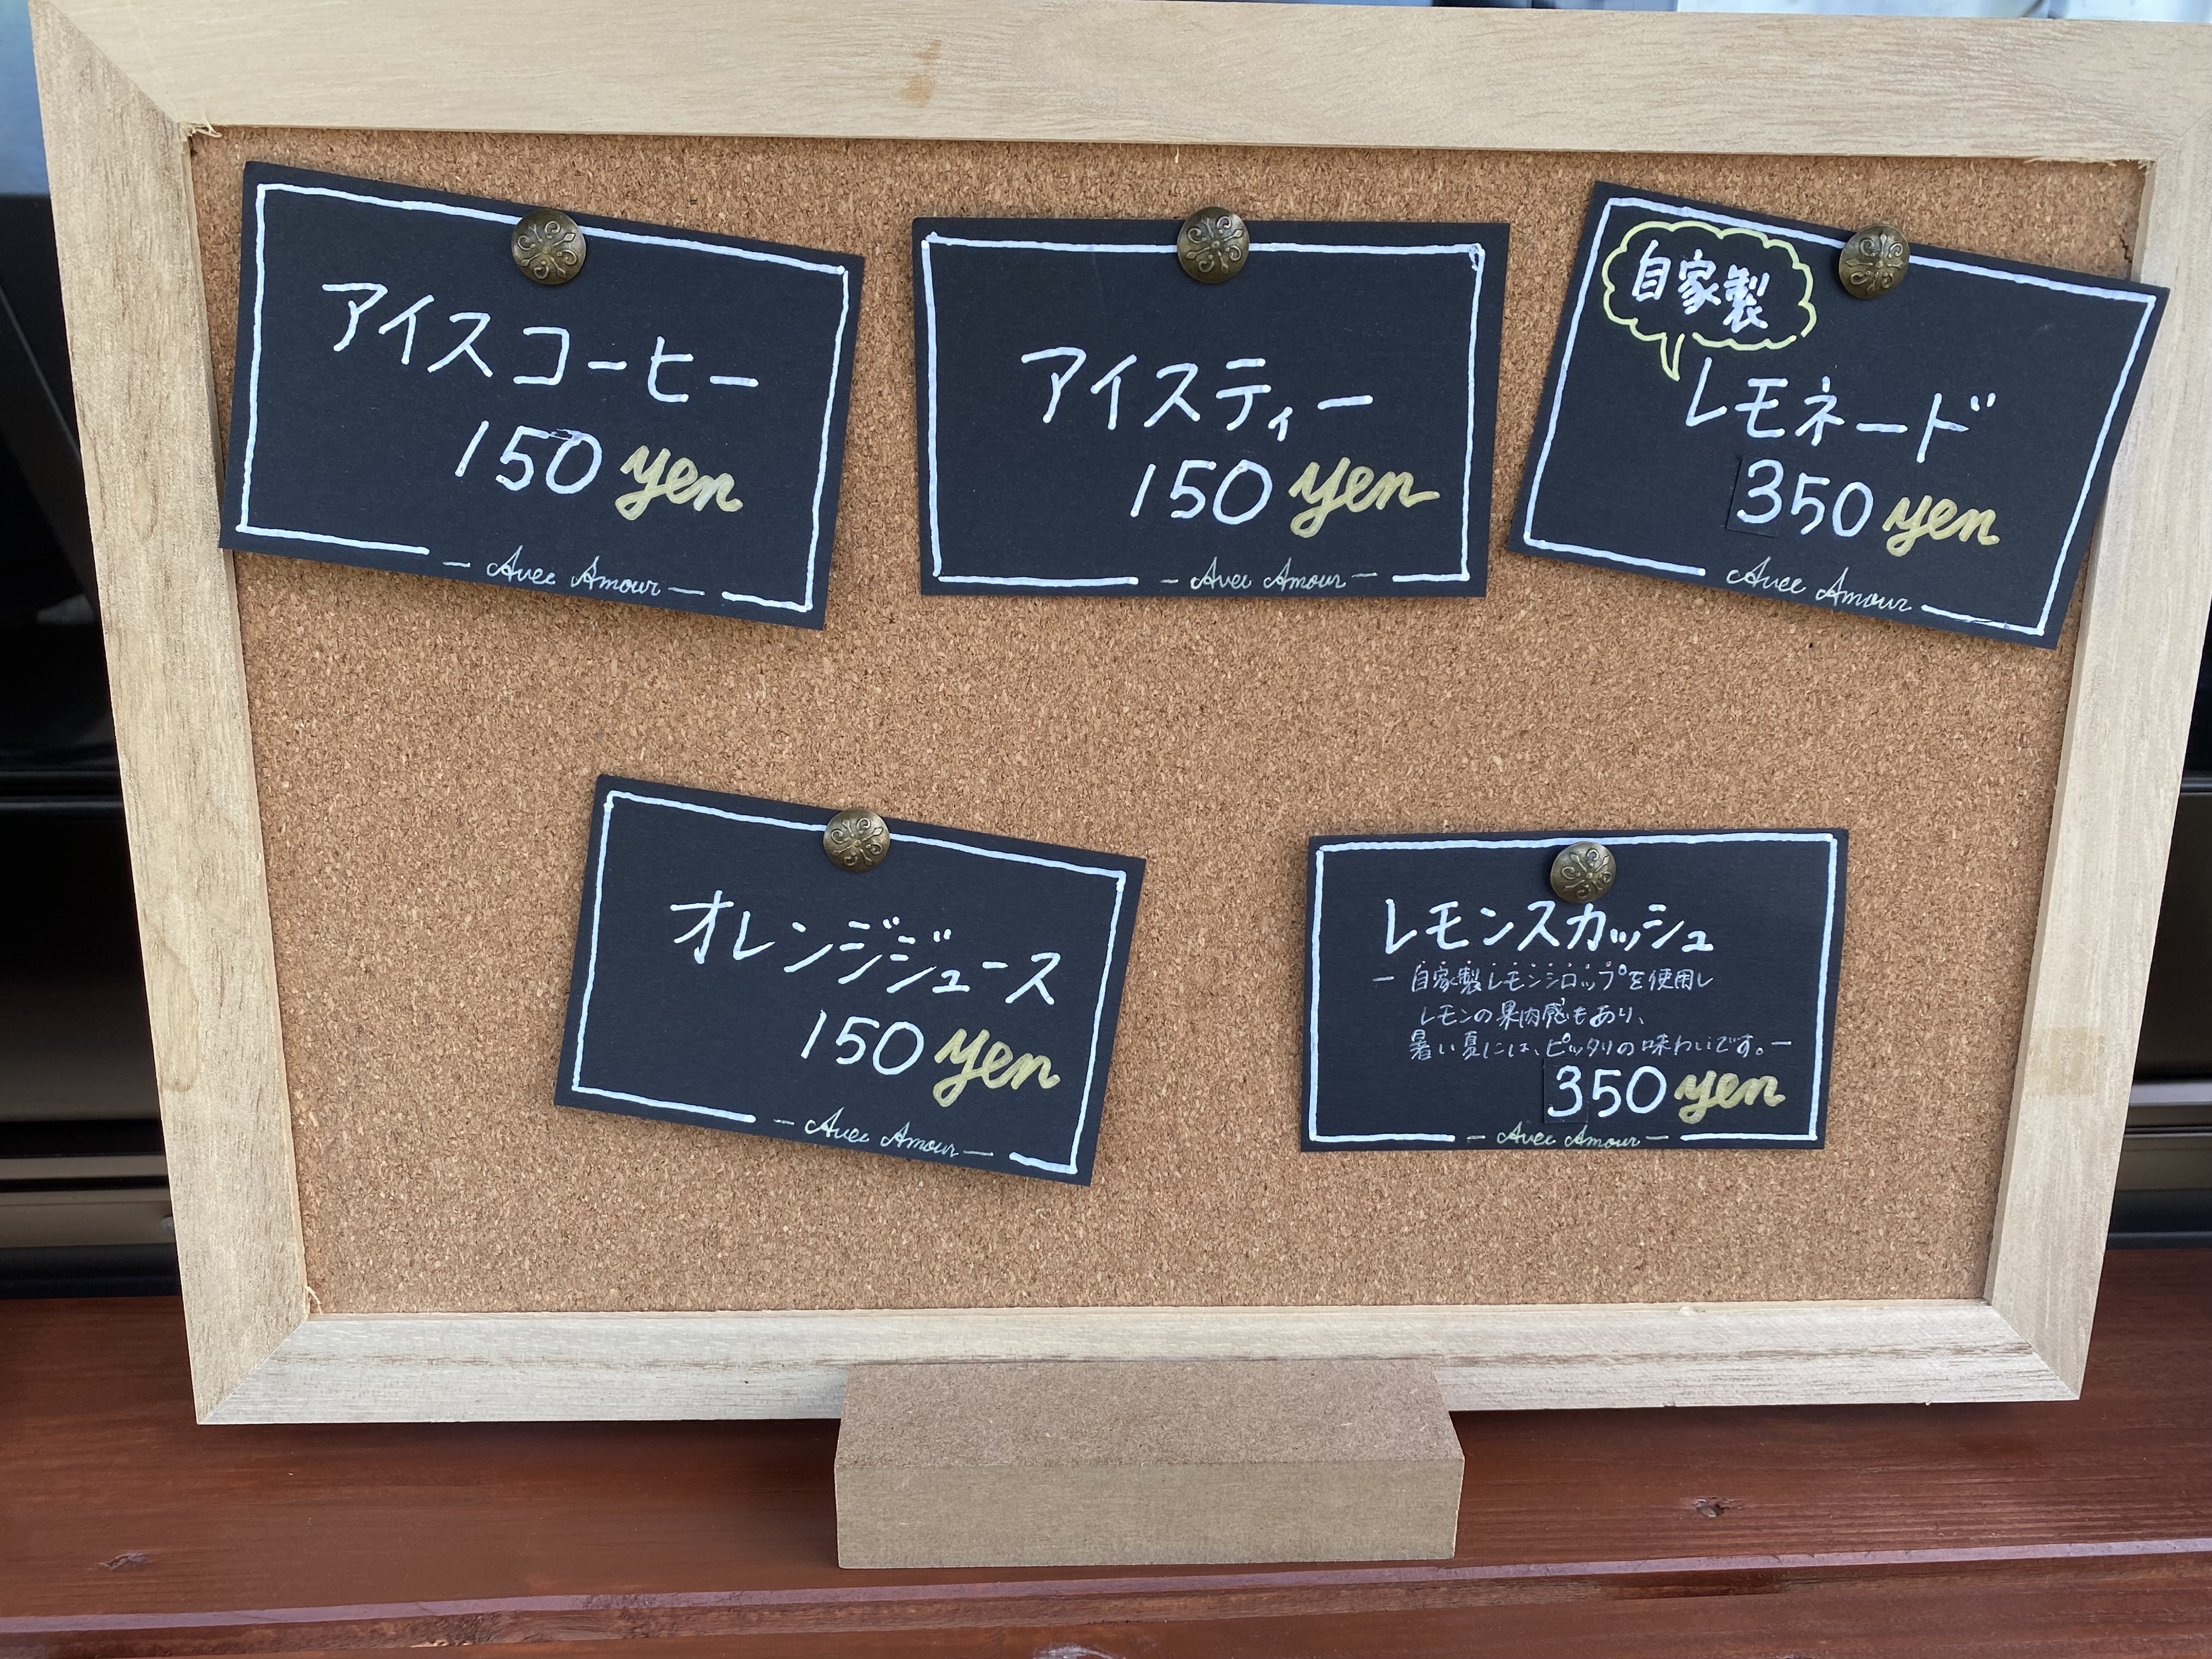 アイスコーヒー
150 yen
- Avec Amour -
アイスティー
150 yen
- Avec Amour -
自家製
レモネード
350 yen
Avec Amour
オレンジジュース
150 yen
- Avec Amour -
レモンスカッシュ
- 自家製レモンシロップを使用し
レモンの果肉感もあり、
暑い夏には、ピッタリの味わいです。-
350 yen
- Avec Amour -